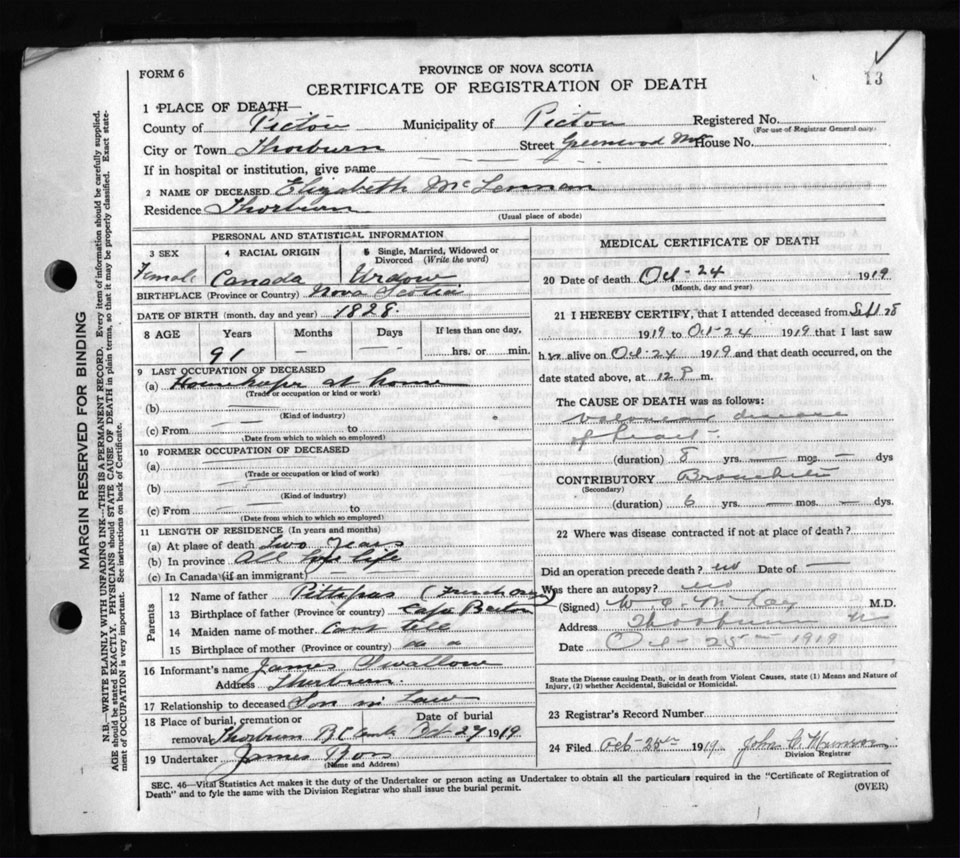 13
PROVINCE OF NOVA SCOTIA
FORM 6
CERTIFICATE OF REGISTRATION OF DEATH
1 PLACE OF DEATH—
County of Pictou Municipality of Pictou Registered No.
(For use of Registrar General only)
City or Town Thorburn Street Greenwood House No.
If in hospital or institution, give name
2 NAME OF DECEASED Elizabeth McLennan
Residence Thorburn
(Usual place of abode)
PERSONAL AND STATISTICAL INFORMATION
3 SEX 4 RACIAL ORIGIN 5 Single, Married, Widowed or Divorced (Write the word)
Female Canada Widow
BIRTHPLACE (Province or Country) Nova Scotia
DATE OF BIRTH (month, day and year) 1828.
8 AGE Years Months Days If less than one day,
91 — — hrs. or min.
9 LAST OCCUPATION OF DECEASED
(a) Housekeeper at home
(Trade or occupation or kind or work)
(b) — —
(Kind of industry)
(c) From — — to
(Date from which to which so employed)
10 FORMER OCCUPATION OF DECEASED
(a)
(Trade or occupation or kind or work)
(b)
(Kind of industry)
(c) From to
(Date from which to which so employed)
11 LENGTH OF RESIDENCE (In years and months)
(a) At place of death Two years
(b) In province All life
(c) In Canada (if an immigrant)
Parents
12 Name of father (Frenchman)
13 Birthplace of father (Province or country) Cape Breton
14 Maiden name of mother Cant tell
15 Birthplace of mother (Province or country) " "
16 Informant's name James Swallow
Address Thorburn
17 Relationship to deceased Son in law
18 Place of burial, cremation or Date of burial
removal Thorburn R.C. Oct 27 1919.
19 Undertaker James Ross
(Name and Address)
MEDICAL CERTIFICATE OF DEATH
20 Date of death Oct - 24 1919
(Month, day and year)
21 I HEREBY CERTIFY, that I attended deceased from Sept 28
1919 to Oct - 24 1919 that I last saw
h alive on Oct. 24 1919 and that death occurred, on the
date stated above, at 12 P m.
The CAUSE OF DEATH was as follows:
disease
of heart
(duration) 8 yrs. — mos. — dys
CONTRIBUTORY Bronchitis
(Secondary)
(duration) 6 yrs. — mos. — dys.
22 Where was disease contracted if not at place of death?
Did an operation precede death? no Date of —
Was there an autopsy? no
(Signed) W. E. McKay M.D.
Address Thorburn NS
Date Oct - 25 — 1919
State the Disease causing Death, or in death from Violent Causes, state (1) Means and Nature of
Injury, (2) whether Accidental, Suicidal or Homicidal.
23 Registrar's Record Number
24 Filed Oct 25th 1919 John
Division Registrar
SEC. 46—Vital Statistics Act makes it the duty of the Undertaker or person acting as Undertaker to obtain all the particulars required in the "Certificate of Registration of
Death" and to fyle the same with the Division Registrar who shall issue the burial permit.
(OVER)
MARGIN RESERVED FOR BINDING
N.B.—WRITE PLAINLY WITH UNFADING INK—THIS IS A PERMANENT RECORD. Every item of information should be carefully supplied.
AGE should be stated EXACTLY. PHYSICIANS should STATE CAUSE OF DEATH in plain terms, so that it may be properly classified. Exact state-
ment of OCCUPATION is very important. See instructions on back of Certificate.